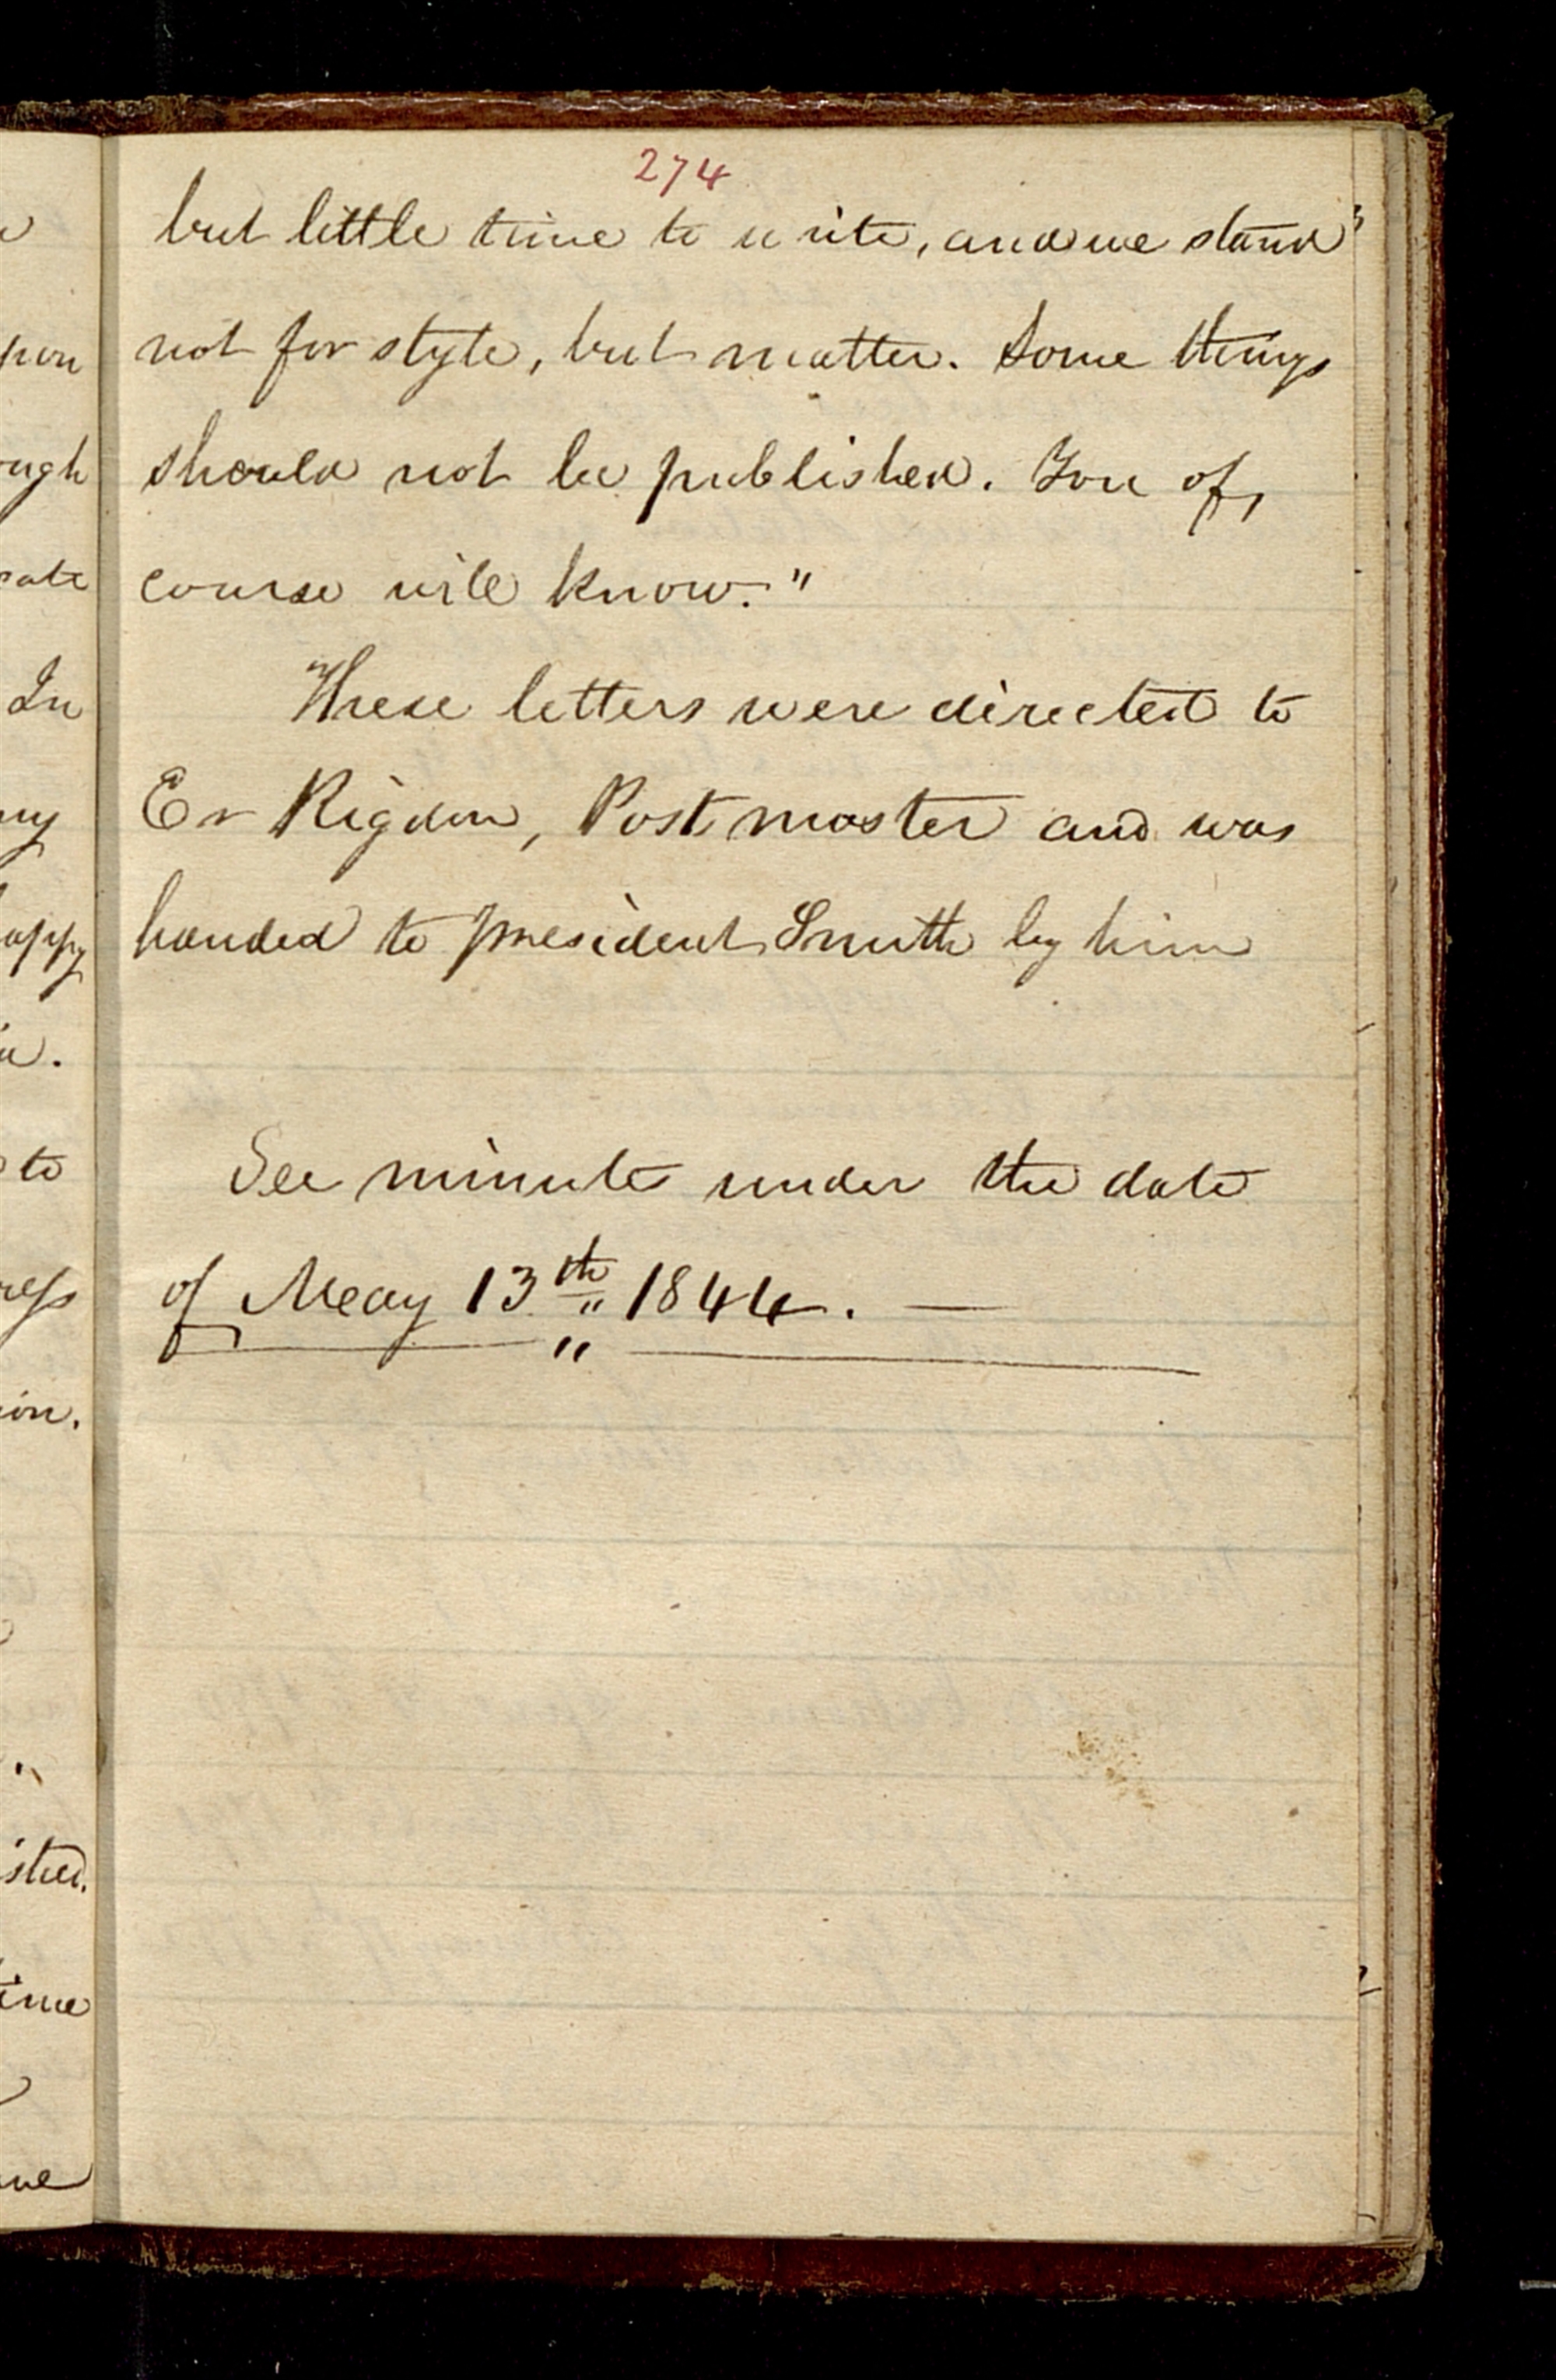 274
but little time to write, and we stand
not for style, but matter. Some things
should not be published. You of
course will know."
These letters were directed to
Er Rigdon, Post master and was
handed to president Smith by him
See minute under the date
of May 13th 1844. —
pon
ugh
cate
In
ny
appy
to
ress
ion.
ished.
time